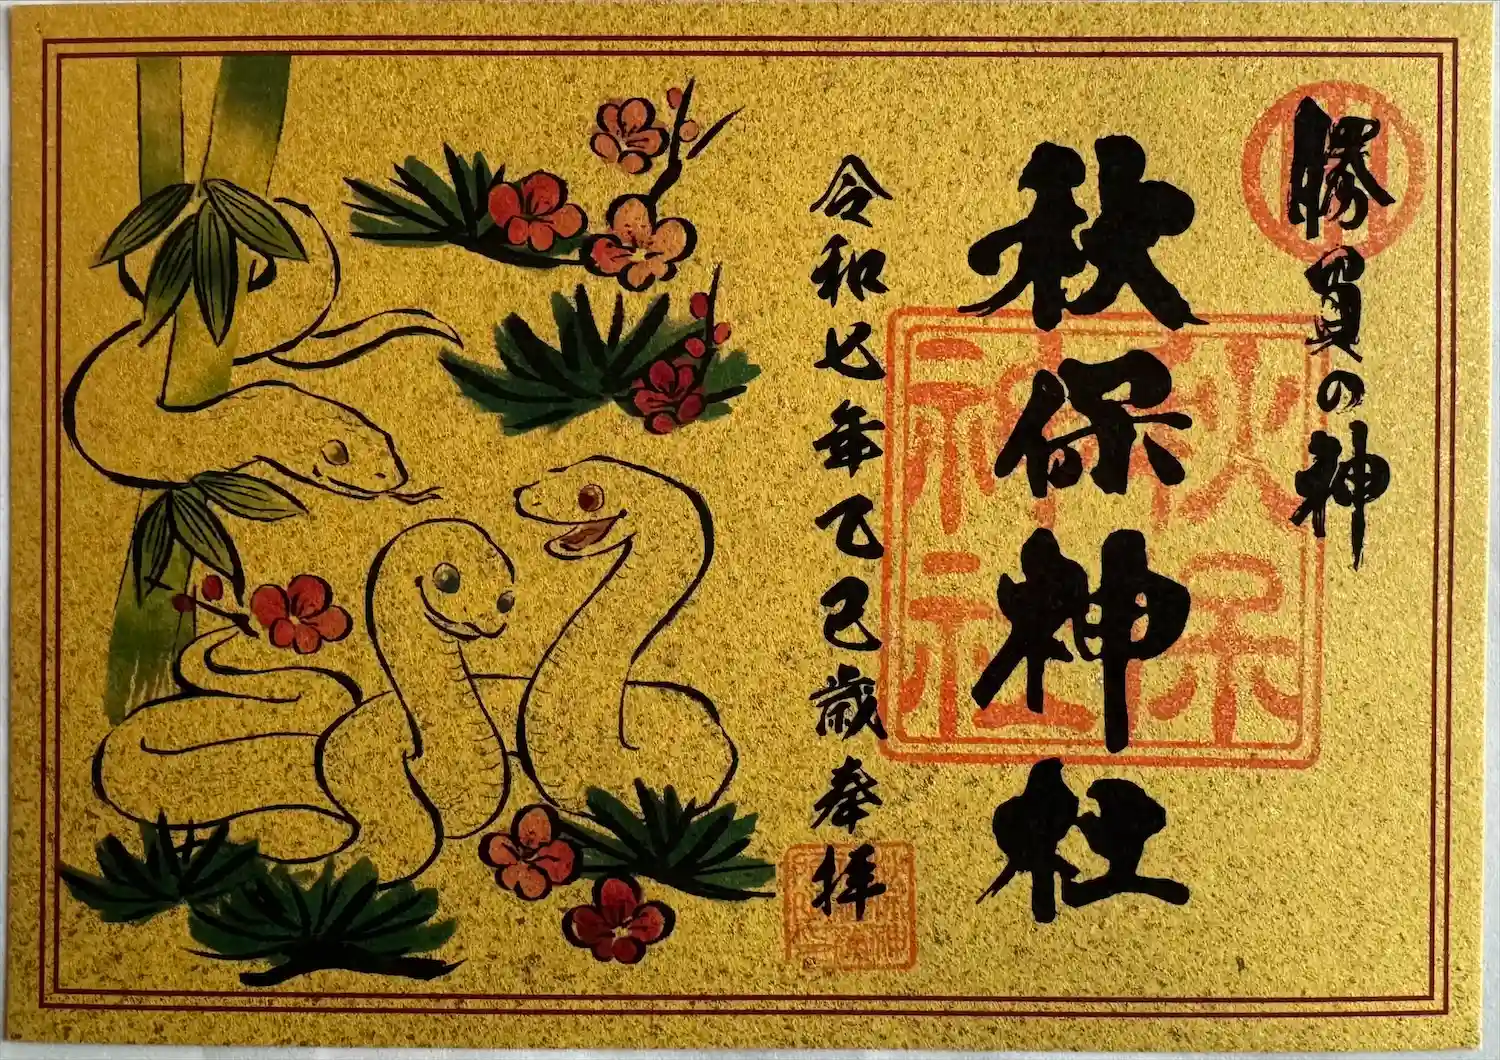 勝負の神
秋保神社
令和七年乙巳歳奉拝
秋保
神社